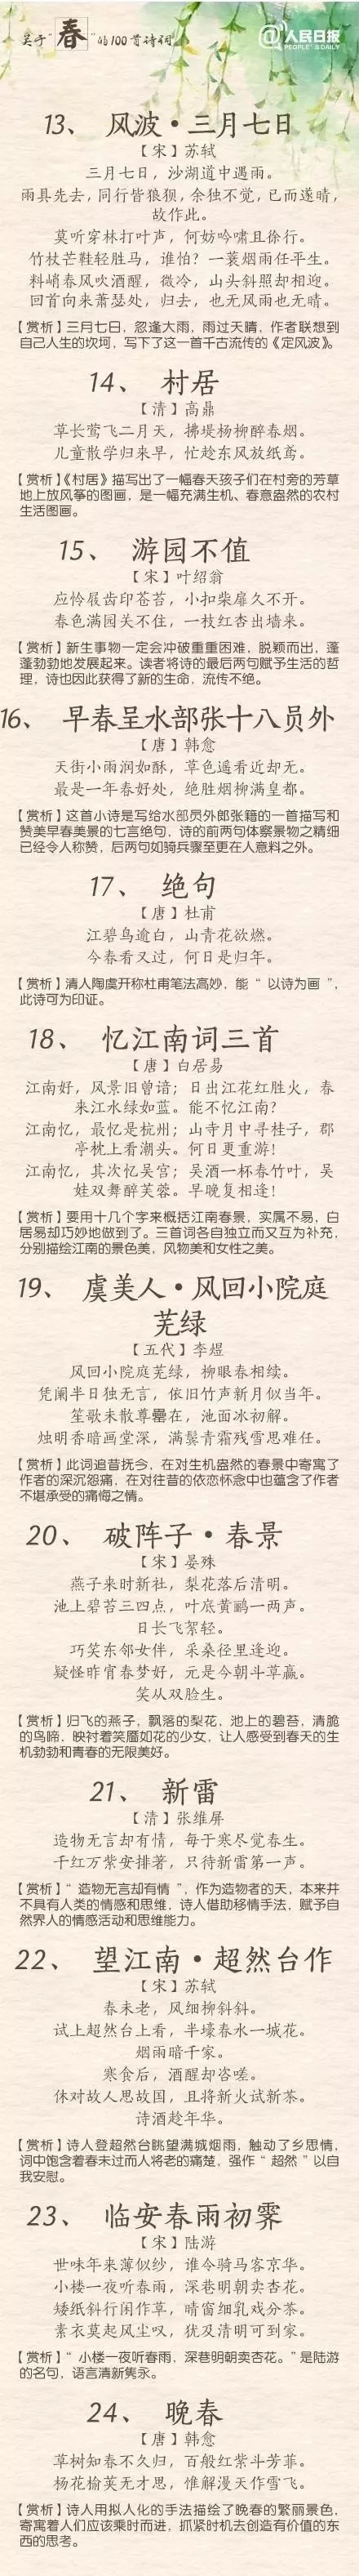 关于“春”的100首诗词
@人民日报
PEOPLE'S DAILY
13、 风波·三月七日
【宋】苏轼
三月七日，沙湖道中遇雨。
雨具先去，同行皆狼狈，余独不觉，已而遂晴，
故作此。
莫听穿林打叶声，何妨吟啸且徐行。
竹杖芒鞋轻胜马，谁怕？一蓑烟雨任平生。
料峭春风吹酒醒，微冷，山头斜照却相迎。
回首向来萧瑟处，归去，也无风雨也无晴。
【赏析】三月七日，忽逢大雨，雨过天晴，作者联想到
自己人生的坎坷，写下了这一首千古流传的《定风波》。
14、 村居
【清】高鼎
草长莺飞二月天，拂堤杨柳醉春烟。
儿童散学归来早，忙趁东风放纸鸢。
【赏析】《村居》描写出了一幅春天孩子们在村旁的芳草
地上放风筝的图画，是一幅充满生机、春意盎然的农村
生活图画。
15、 游园不值
【宋】叶绍翁
应怜屐齿印苍苔，小扣柴扉久不开。
春色满园关不住，一枝红杏出墙来。
【赏析】新生事物一定会冲破重重困难，脱颖而出，蓬
蓬勃勃地发展起来。读者将诗的最后两句赋予生活的哲
理，诗也因此获得了新的生命，流传不绝。
16、 早春呈水部张十八员外
【唐】韩愈
天街小雨润如酥，草色遥看近却无。
最是一年春好处，绝胜烟柳满皇都。
【赏析】这首小诗是写给水部员外郎张籍的一首描写和
赞美早春美景的七言绝句，诗的前两句体察景物之精细
已经令人称赞，后两句如骑兵骤至更在人意料之外。
17、 绝句
【唐】杜甫
江碧鸟逾白，山青花欲燃。
今春看又过，何日是归年。
【赏析】清人陶虞开称杜甫笔法高妙，能“ 以诗为画 ”，
此诗可为印证。
18、 忆江南词三首
【唐】白居易
江南好，风景旧曾谙；日出江花红胜火，春
来江水绿如蓝。能不忆江南？
江南忆，最忆是杭州；山寺月中寻桂子，郡
亭枕上看潮头。何日更重游！
江南忆，其次忆吴宫；吴酒一杯春竹叶，吴
娃双舞醉芙蓉。早晚复相逢！
【赏析】要用十几个字来概括江南春景，实属不易，白
居易却巧妙地做到了。三首词各自独立而又互为补充，
分别描绘江南的景色美，风物美和女性之美。
19、 虞美人·风回小院庭
芜绿
【五代】李煜
风回小院庭芜绿，柳眼春相续。
凭阑半日独无言，依旧竹声新月似当年。
笙歌未散尊罍在，池面冰初解。
烛明香暗画堂深，满鬓青霜残雪思难任。
【赏析】此词追昔抚今，在对生机盎然的春景中寄寓了
作者的深沉怨痛，在对往昔的依恋怀念中也蕴含了作者
不堪承受的痛悔之情。
20、 破阵子·春景
【宋】晏殊
燕子来时新社，梨花落后清明。
池上碧苔三四点，叶底黄鹂一两声。
日长飞絮轻。
巧笑东邻女伴，采桑径里逢迎。
疑怪昨宵春梦好，元是今朝斗草赢。
笑从双脸生。
【赏析】归飞的燕子，飘落的梨花，池上的碧苔，清脆
的鸟啼，映衬着笑靥如花的少女，让人感受到春天的生
机勃勃和青春的无限美好。
21、 新雷
【清】张维屏
造物无言却有情，每于寒尽觉春生。
千红万紫安排著，只待新雷第一声。
【赏析】“ 造物无言却有情 ”，作为造物者的天，本来并
不具有人类的情感和思维，诗人借助移情手法，赋予自
然界人的情感活动和思维能力。
22、 望江南·超然台作
【宋】苏轼
春未老，风细柳斜斜。
试上超然台上看，半壕春水一城花。
烟雨暗千家。
寒食后，酒醒却咨嗟。
休对故人思故国，且将新火试新茶。
诗酒趁年华。
【赏析】诗人登超然台眺望满城烟雨，触动了乡思情，
词中饱含着春未过而人将老的痛楚，强作“ 超然 ”以自
我安慰。
23、 临安春雨初霁
【宋】陆游
世味年来薄似纱，谁令骑马客京华。
小楼一夜听春雨，深巷明朝卖杏花。
矮纸斜行闲作草，晴窗细乳戏分茶。
素衣莫起风尘叹，犹及清明可到家。
【赏析】“ 小楼一夜听春雨，深巷明朝卖杏花。”是陆游
的名句，语言清新隽永。
24、 晚春
【唐】韩愈
草树知春不久归，百般红紫斗芳菲。
杨花榆荚无才思，惟解漫天作雪飞。
【赏析】诗人用拟人化的手法描绘了晚春的繁丽景色，
寄寓着人们应该乘时而进，抓紧时机去创造有价值的东
西的思考。